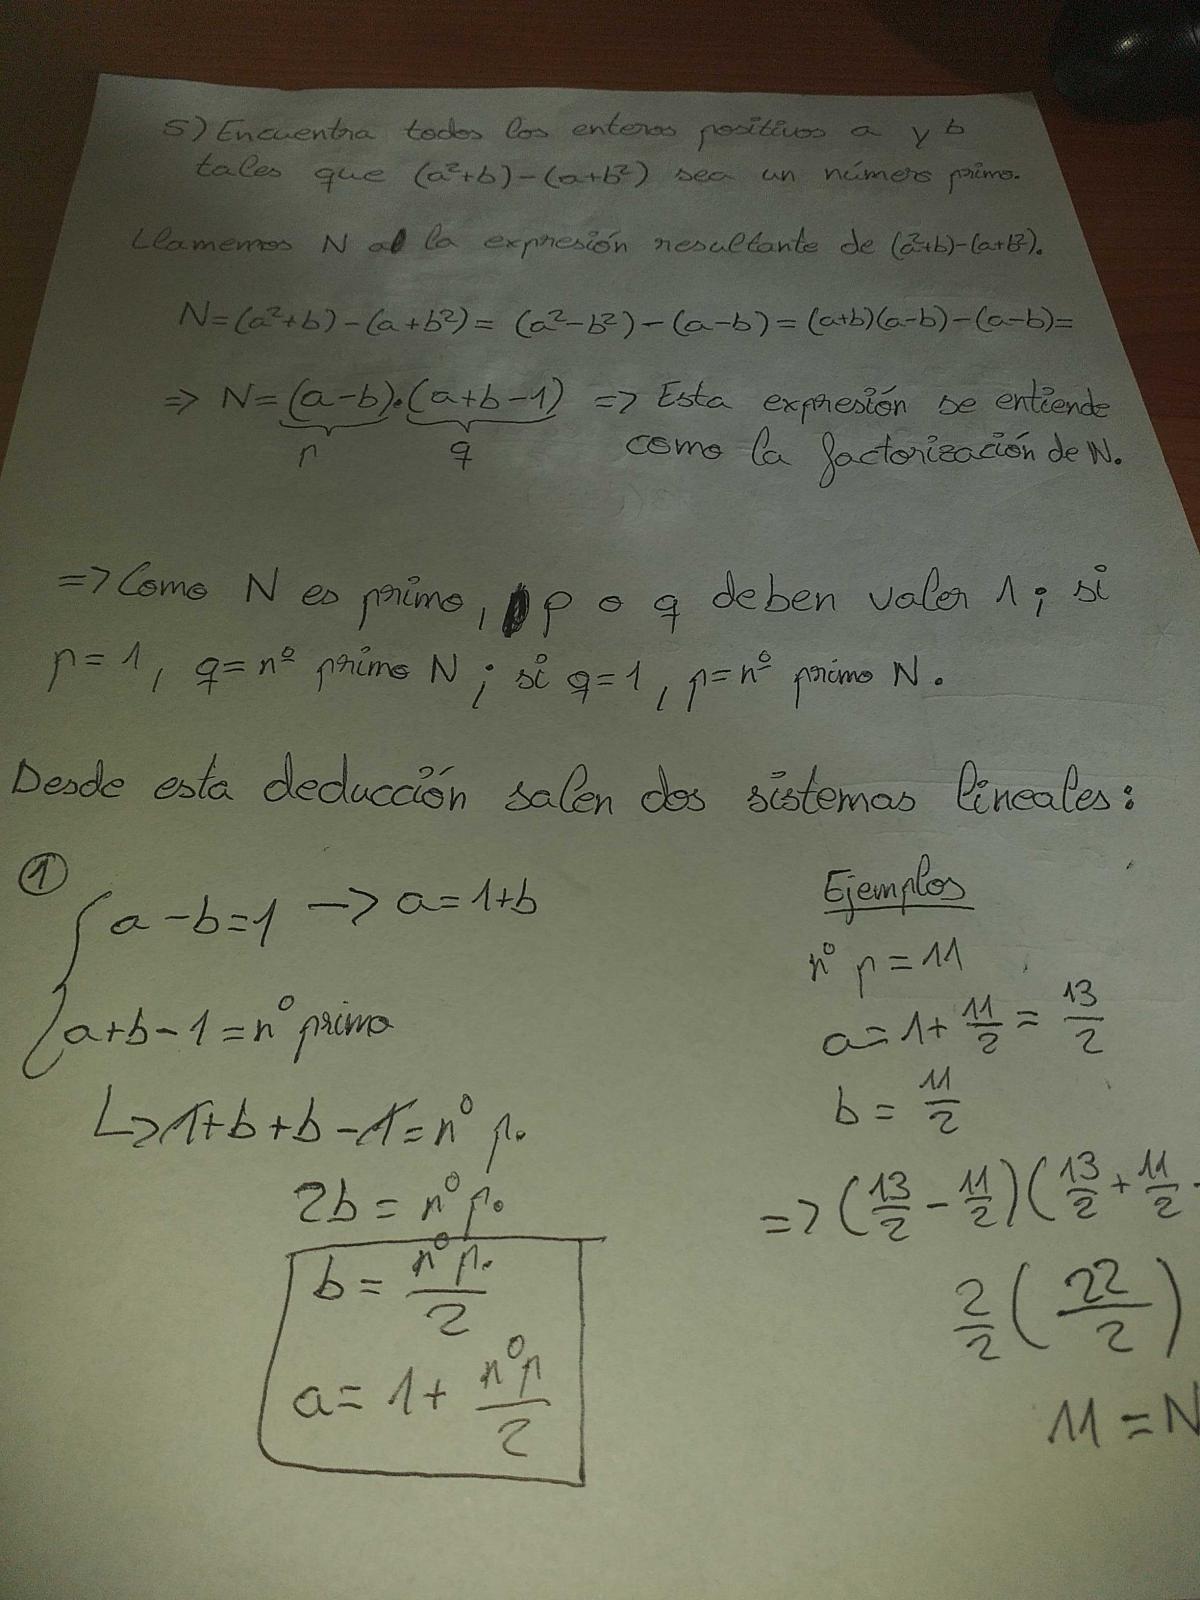 5) Encuentra todos los enteros positivos a y b
tales que (a²+b)-(a+b²) sea un número primo.
Llamemos N a la expresión resultante de (a²+b)-(a+b²).
N=(a²+b)-(a+b²)= (a²-b²)-(a-b)=(a+b)(a-b)-(a-b)=
=> N=(a-b)·(a+b-1) => Esta expresión se entiende
p q como la factorización de N.
=> Como N es primo, p o q deben valer 1; si
p=1, q=nº primo N; si q=1, p=nº primo N.
Desde esta deducción salen dos sistemas lineales:
① a-b=1 -> a=1+b
a+b-1=nº primo
↳ 1+b+b-1=nº p.
2b=nº p.
b= nº p./2
a= 1+ nº p/2
Ejemplos
nº p=11
a=1+ 11/2 = 13/2
b= 11/2
=> (13/2 - 11/2)(13/2 + 11/2 -
2/2 (22/2)
11=N